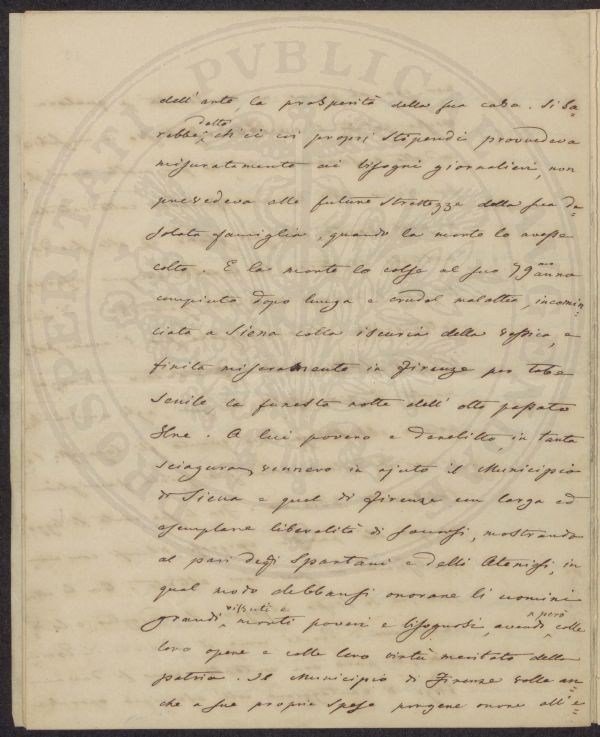 dell'arte, la prosperità della sua casa. Si sa=
rebbe detto, ch'ei coi proprj stipendi provvedeva
misuratamente ai bisogni giornalieri, non
prevedeva alle future strettezze della sua de=
solata famiglia, quando la morte lo avesse
colto. E la morte lo colse al suo 79.mo anno
compiuto dopo lunga e crudel malattia, incomin=
ciata a Siena colla iscuria della vessica, e
finita miseramente in Firenze per tabe
senile la funesta notte dell'otto passato
A lui povero e derelitto, in tanta
sciagura, vennero in ajuto il Municipio
di Siena e quel di Firenze con larga ed
esemplare liberalità di soccorsi, mostrando
al pari degli Spartani e delli Ateniesi, in
qual modo debbansi onorare li uomini
grandi, vissuti e morti poveri e bisognosi, avendo però colle
loro opere e colle loro virtù meritato della
patria. Il Municipio di Firenze volle an=
che a sue proprie spese porgere onore all'e=
PROSPERITATI PUBLICAE